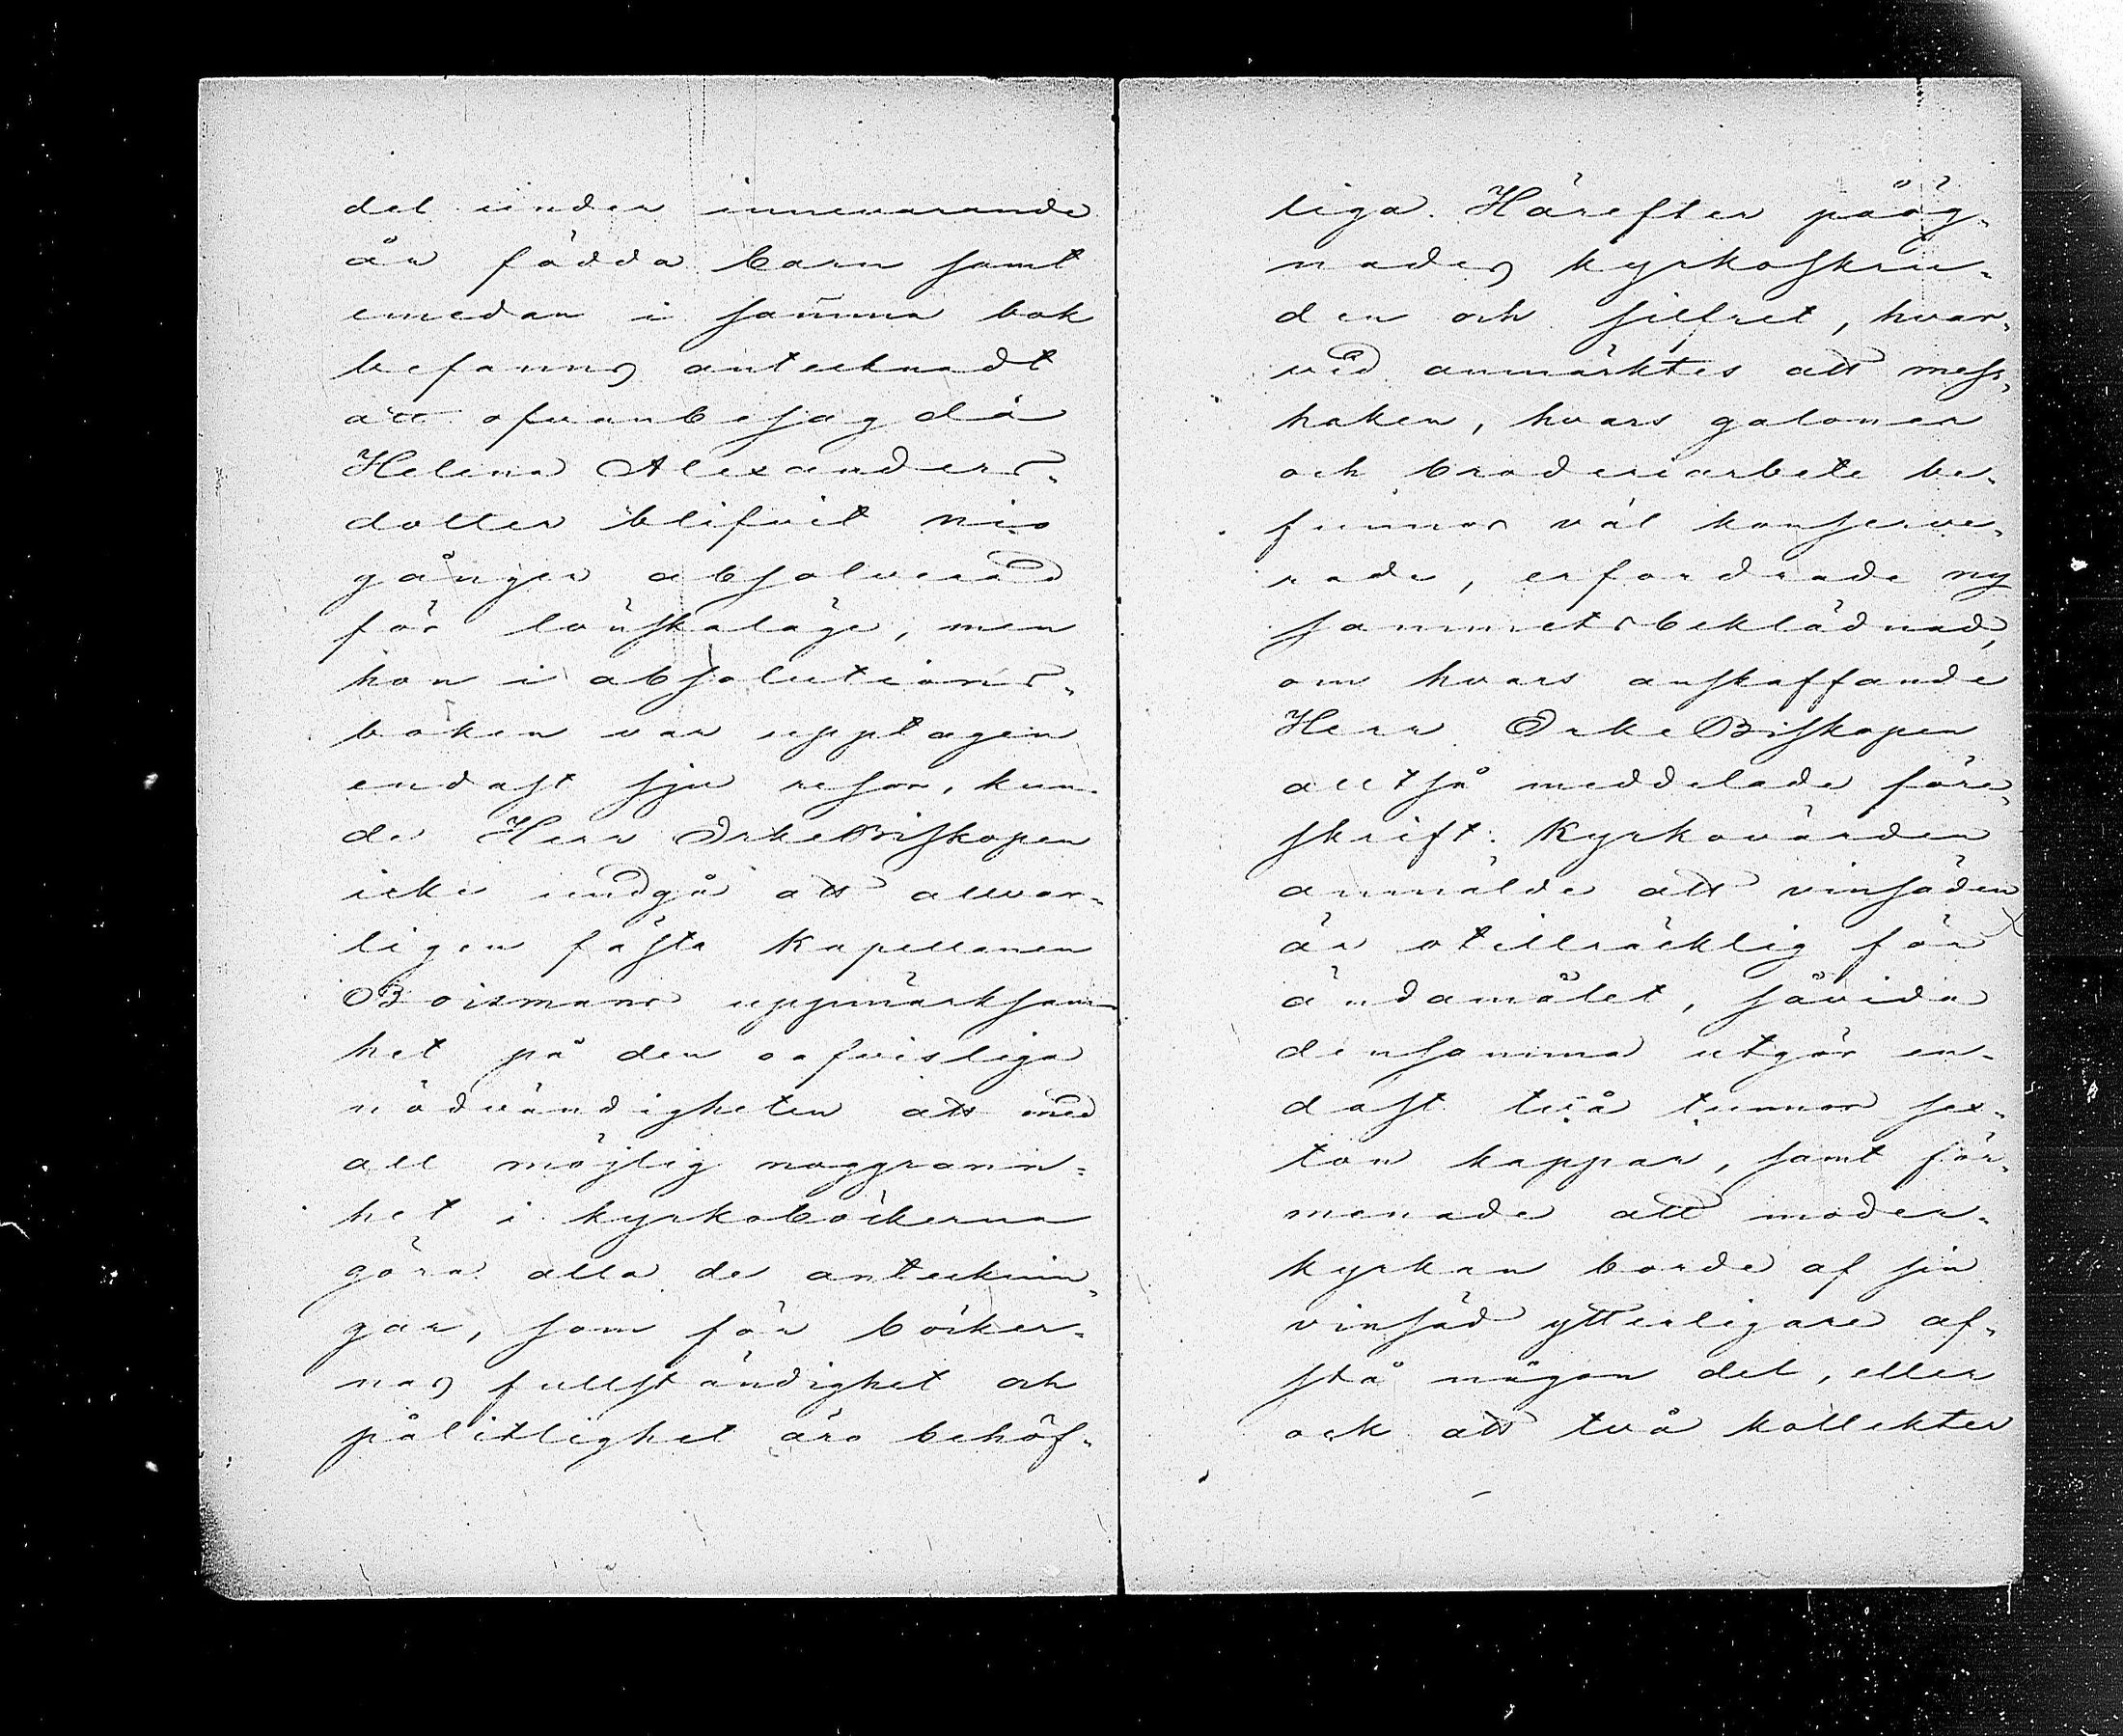 del under innevarande
år födda barn samt
emedan i samma bok
befanns antecknadt
att ofvanbesagda
Helena Alexanders-
dotter blifvit nio
gånger absolverad
för lönskaläge, men
hon i absolutions-
boken var upptagen
endast sju resor, kun-
de Herr ErkeBiskopen
icke undgå att allvar-
ligen fästa Kapellanen
Boismans uppmärksam-
het på den oafvisliga
nödvändigheten att med
all möjlig noggrann-
het i kyrkoböckerna
göra alla de antecknin-
gar, som för böcker-
nas fullständighet och
pålitlighet äro behöf-
liga. Härefter påög-
nades kyrkoskru-
den och silfret, hvar-
vid anmärktes att mess-
haken, hvars galoner
och broderiarbete be-
funnos väl konserve-
rade, erfordrade ny
sammetsbeklädnad,
om hvars anskaffande
Herr ErkeBiskopen
alltså meddelade före-
skrift. Kyrkovärden
anmälde att vinsäden
är otillräcklig för
ändamålet, såvida
densamma utgör en-
dast två tunnor sex-
ton kappar, samt för-
menade att moder-
kyrkan borde af sin
vinsäd ytterligare af-
stå någon del, eller
ock att två kollekter